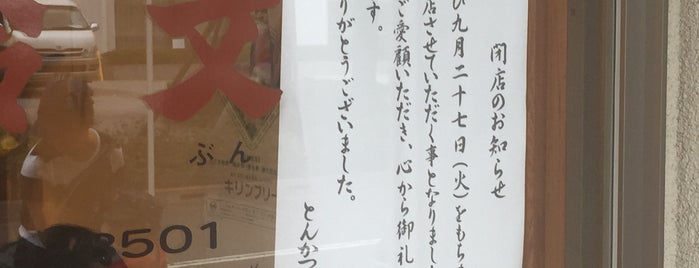 閉店のお知らせ
び九月二十七日(火)をもちま
店させていただく事となりまし
ご愛顧いただき、心から御礼
す。
りがとうございました。
とんかつ
文
ぶん
キリンフリー
8501